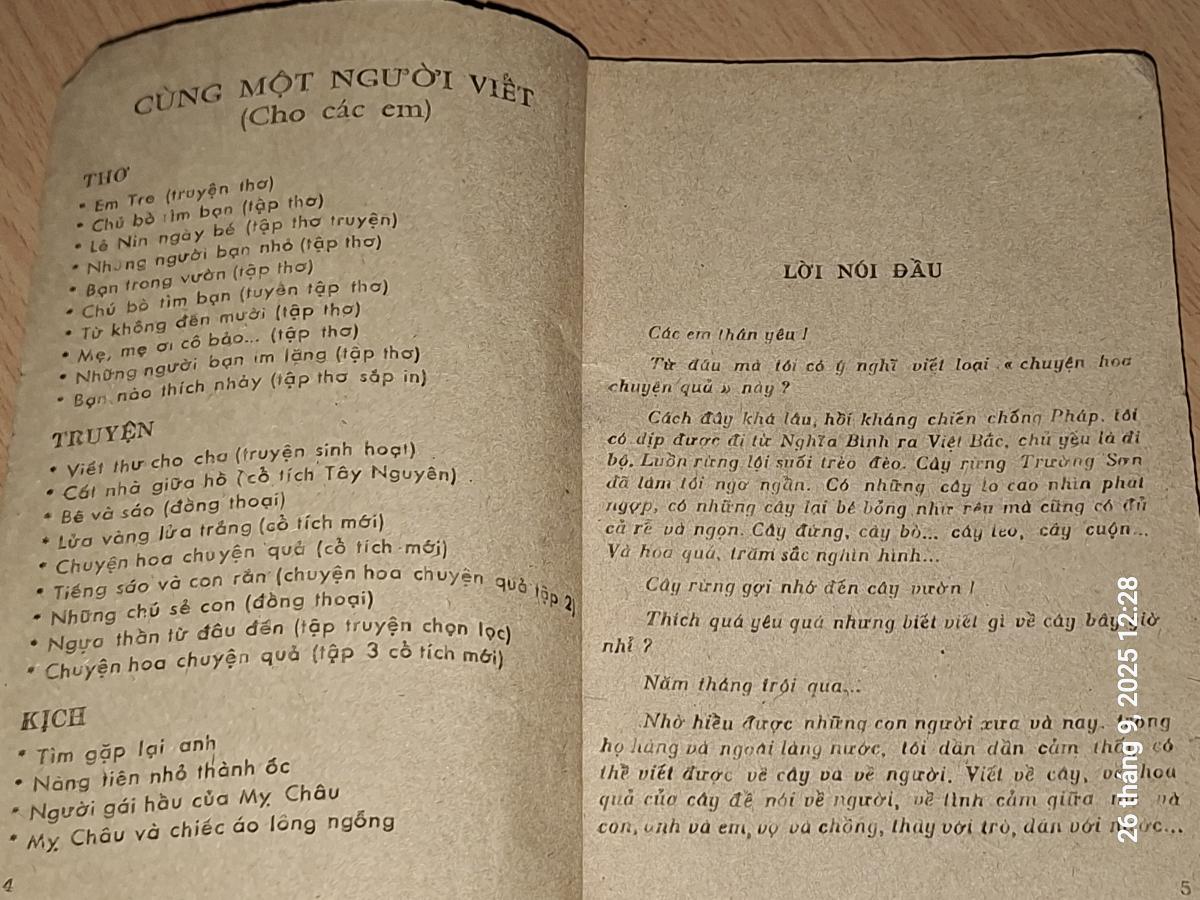 CÙNG MỘT NGƯỜI VIẾT
(Cho các em)
THƠ
• Em Tre (truyện thơ)
• Chú bò tìm bạn (tập thơ)
• Lê Nin ngày bé (tập thơ truyện)
• Những người bạn nhỏ (tập thơ)
• Bạn trong vườn (tập thơ)
• Chú bò tìm bạn (tuyển tập thơ)
• Từ không đến mười (tập thơ)
• Mẹ, mẹ ơi cô bảo... (tập thơ)
• Những người bạn im lặng (tập thơ)
• Bạn nào thích nhảy (tập thơ sắp in)
TRUYỆN
• Viết thư cho cha (truyện sinh hoạt)
• Cất nhà giữa hồ (cổ tích Tây Nguyên)
• Bê và sáo (đồng thoại)
• Lửa vàng lửa trắng (cổ tích mới)
• Chuyện hoa chuyện quả (cổ tích mới)
• Tiếng sáo và con rắn (chuyện hoa chuyện quả tập 2)
• Những chú sẻ con (đồng thoại)
• Ngựa thần từ đâu đến (tập truyện chọn lọc)
• Chuyện hoa chuyện quả (tập 3 cổ tích mới)
KỊCH
• Tìm gặp lại anh
• Nàng tiên nhỏ thành ốc
• Người gái hầu của Mỵ Châu
• Mỵ Châu và chiếc áo lông ngỗng
4
LỜI NÓI ĐẦU
Các em thân yêu !
Từ đâu mà tôi có ý nghĩ viết loại « chuyện hoa
chuyện quả » này ?
Cách đây khá lâu, hồi kháng chiến chống Pháp, tôi
có dịp được đi từ Nghĩa Bình ra Việt Bắc, chủ yếu là đi
bộ. Luồn rừng lội suối trèo đèo. Cây rừng Trường Sơn
đã làm tôi ngơ ngẩn. Có những cây to cao nhìn phát
ngợp, có những cây lại bé bỏng như rêu mà cũng có đủ
cả rễ và ngọn. Cây đứng, cây bò... cây leo, cây cuộn...
Và hoa quả, trăm sắc nghìn hình...
Cây rừng gợi nhớ đến cây vườn !
Thích quá yêu quá nhưng biết viết gì về cây bây giờ
nhỉ ?
Năm tháng trôi qua...
Nhờ hiểu được những con người xưa và nay, trong
họ hàng và ngoài làng nước, tôi dần dần cảm thấy có
thể viết được về cây và về người. Viết về cây, về hoa
quả của cây để nói về người, về tình cảm giữa và
con, anh và em, vợ và chồng, thầy với trò, dân với nước...
5
26 tháng 9, 2025 12:28